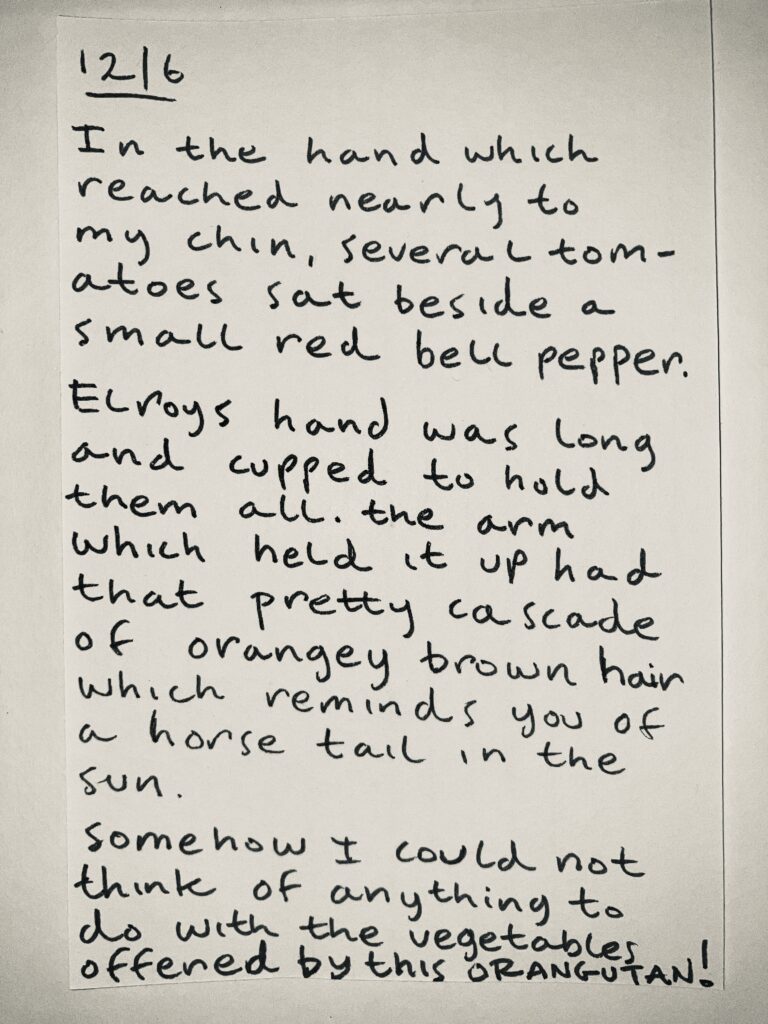 12/6
In the hand which
reached nearly to
my chin, several tom-
atoes sat beside a
small red bell pepper.
Elroys hand was long
and cupped to hold
them all. the arm
which held it up had
that pretty cascade
of orangey brown hair
which reminds you of
a horse tail in the
sun.
somehow I could not
think of anything to
do with the vegetables
offered by this ORANGUTAN!